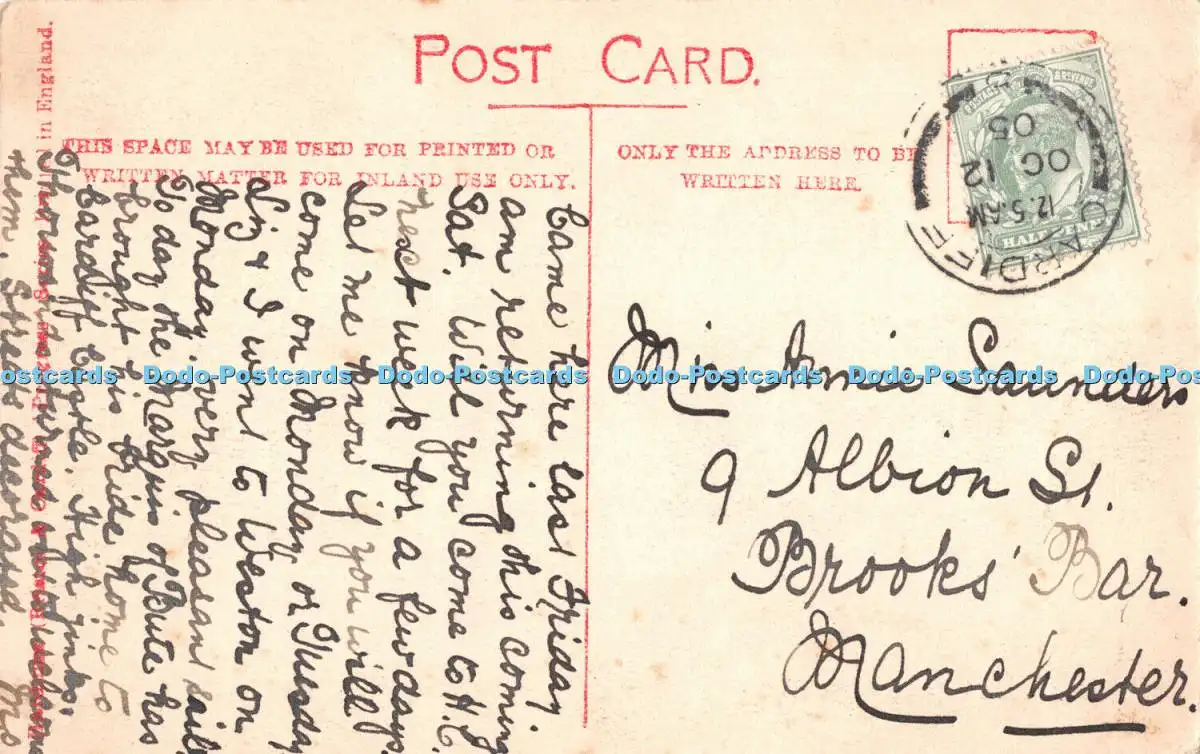 POST CARD.
THIS SPACE MAY BE USED FOR PRINTED OR
WRITTEN MATTER FOR INLAND USE ONLY.
ONLY THE ADDRESS TO BE
WRITTEN HERE.
in England.
POSTAGE & REVENUE
HALFPENNY
CARDIFF
12.5.AM
OC 12
05
Came here last Friday.
am returning this coming
Sat. Will you come to H.C.
next week for a few days.
Let me know if you will
come on Monday or Thursday
& I went to Weston on
Monday, very pleasant sail
To day the Marquis of Bute has
brought his bride home to
Cardiff Castle. High jinks.
Thousands turned out to welcome
them. Streets decorated.
Miss Annie Saunders
9 Albion St.
Brooks' Bar.
Manchester.
Dodo-Postcards Dodo-Postcards Dodo-Postcards Dodo-Postcards Dodo-Postcards